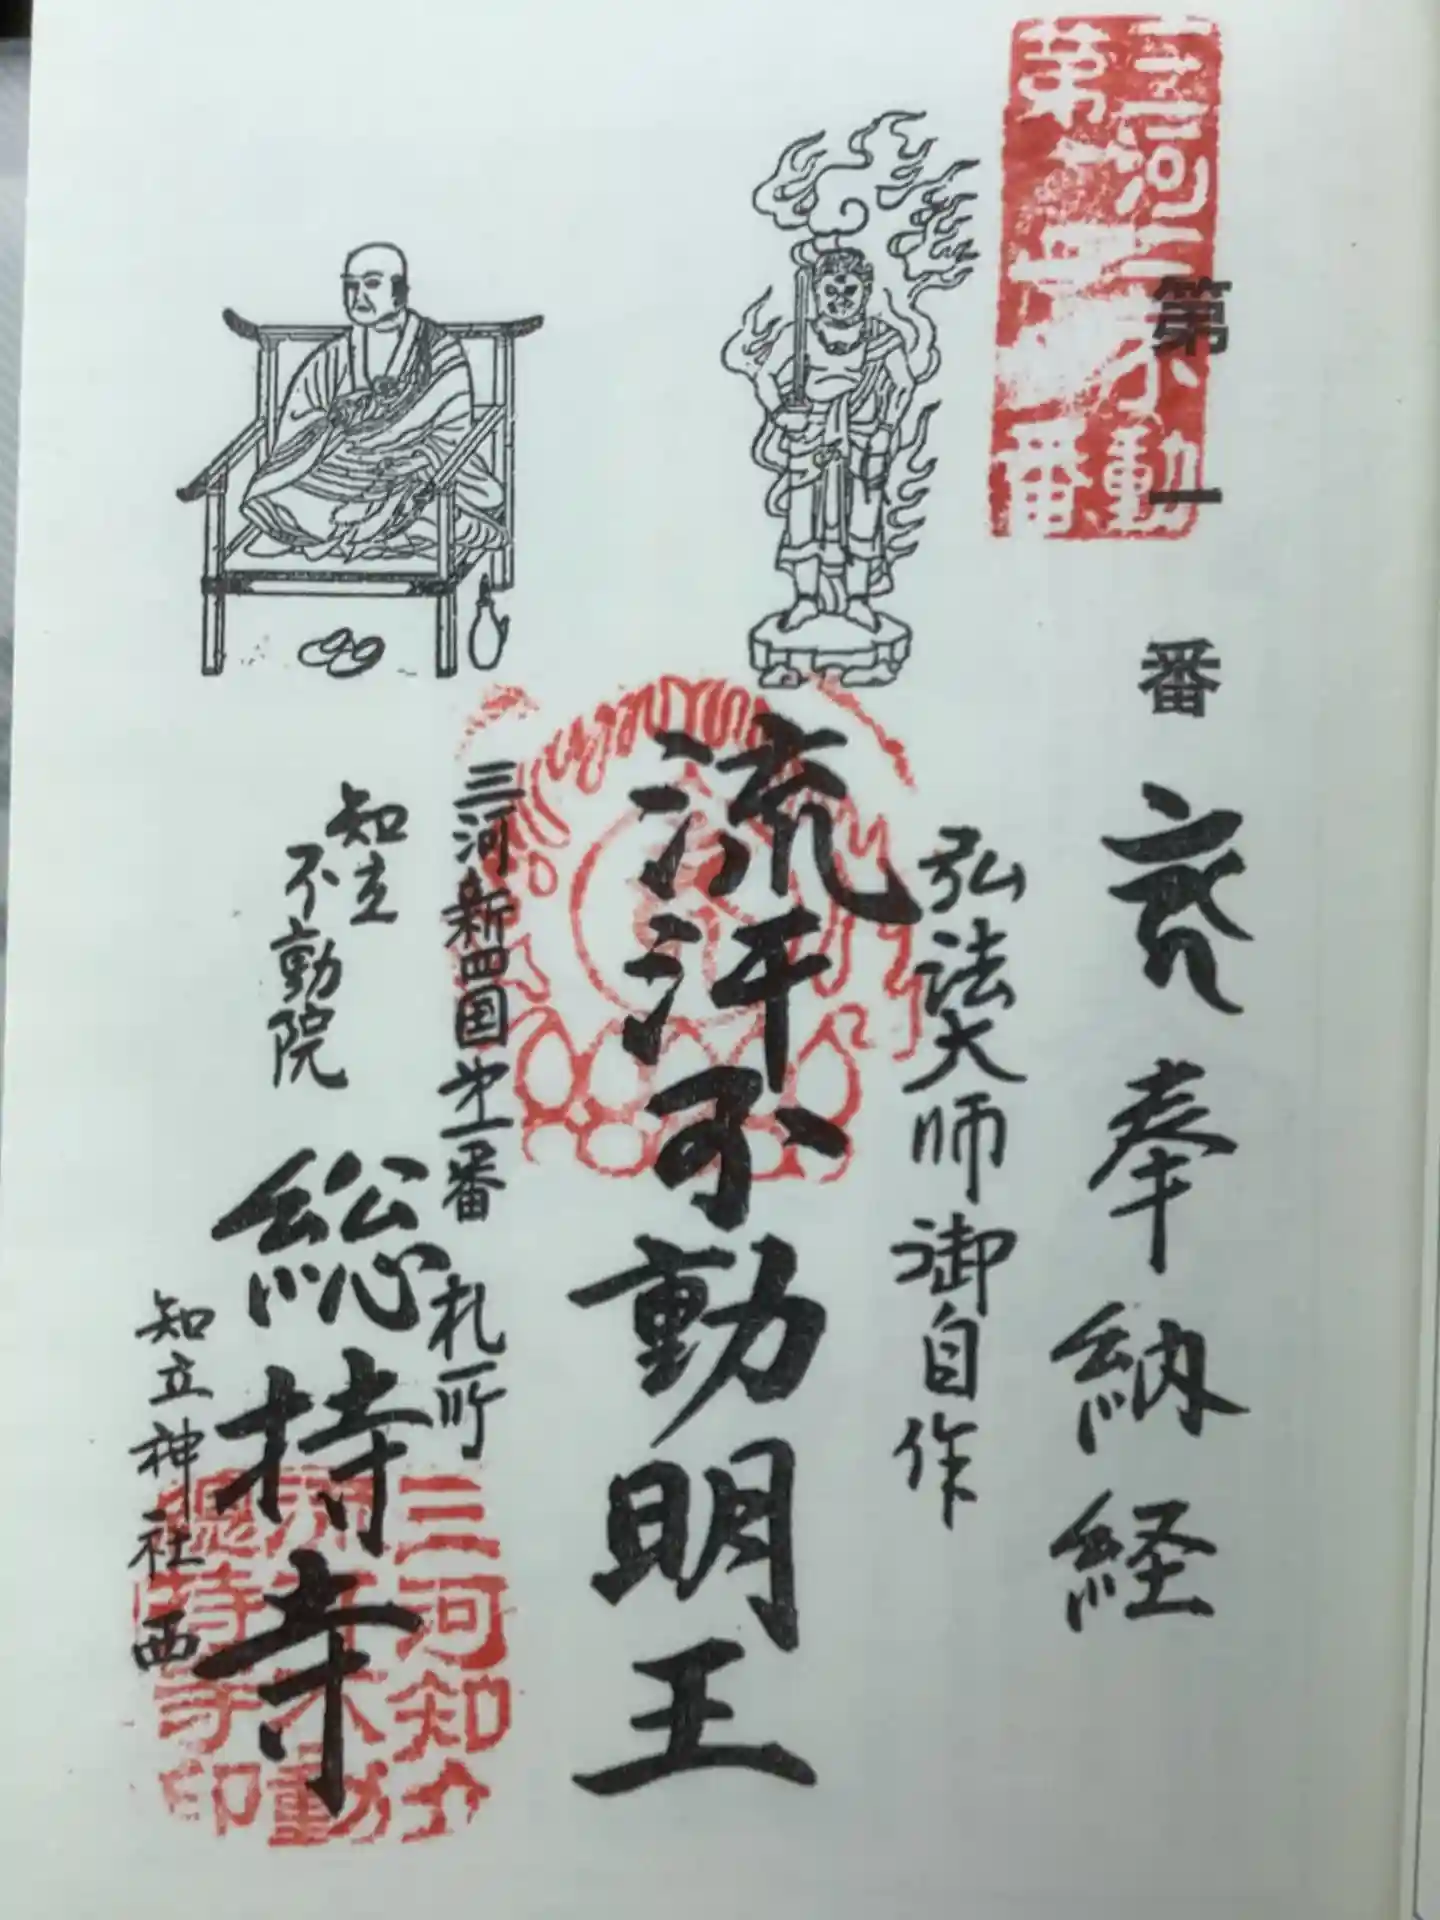 第一番
奉納経
弘法大師御自作
流汗不動明王
三河新四国第一番札所
知立
不動院
総持寺
知立神社西
三河三不動
第一番
三河知立
不動
総持寺印